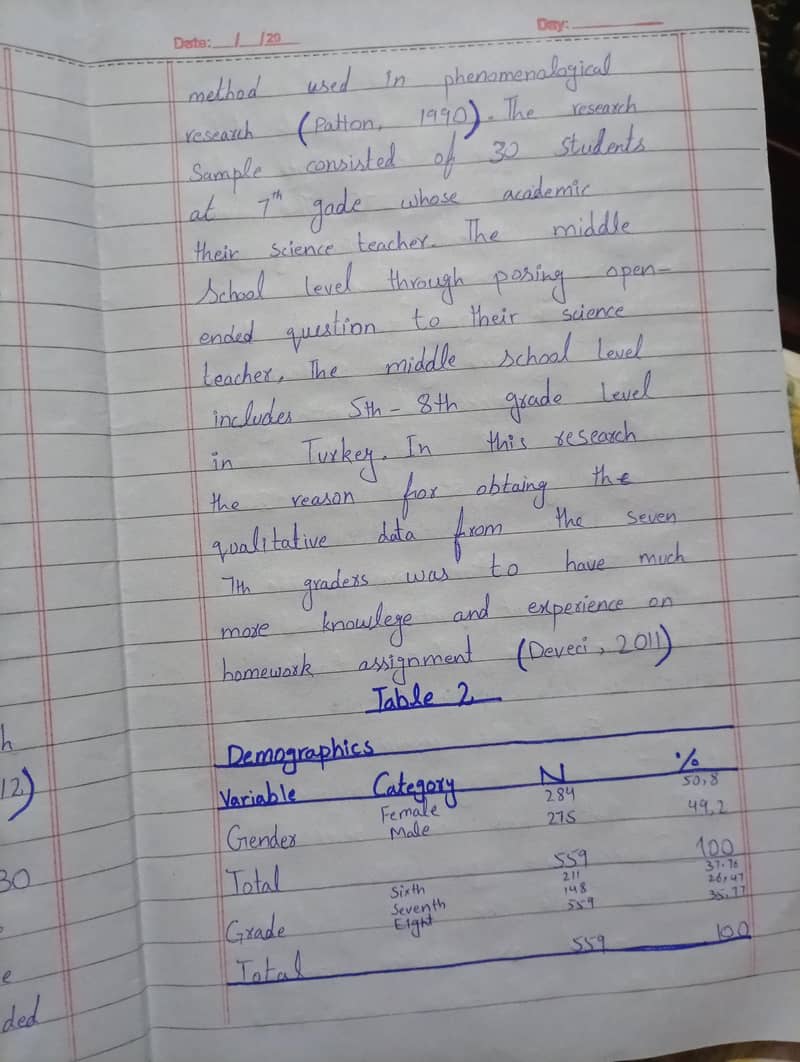 Date: / /20 Day:
method used in phenomenological
research (Patton, 1990). The research
Sample consisted of 30 students
at 7th gade whose academic
their science teacher. The middle
School level through posing open-
ended question to their science
teacher. The middle school level
includes 5th - 8th grade level
in Turkey. In this research
the reason for obtaing the
qualitative data from the seven
7th graders was to have much
more knowlege and experience on
homework assignment (Deveci, 2011)
Table 2
Demographics
Variable Category N %
Female 284 50,8
Gender Male 275 49,2
Total 559 100
Sixth 211 37.76
Seventh 148 26,47
Grade Eight 559 35,77
Total 559 100
h
12)
30
e
ded